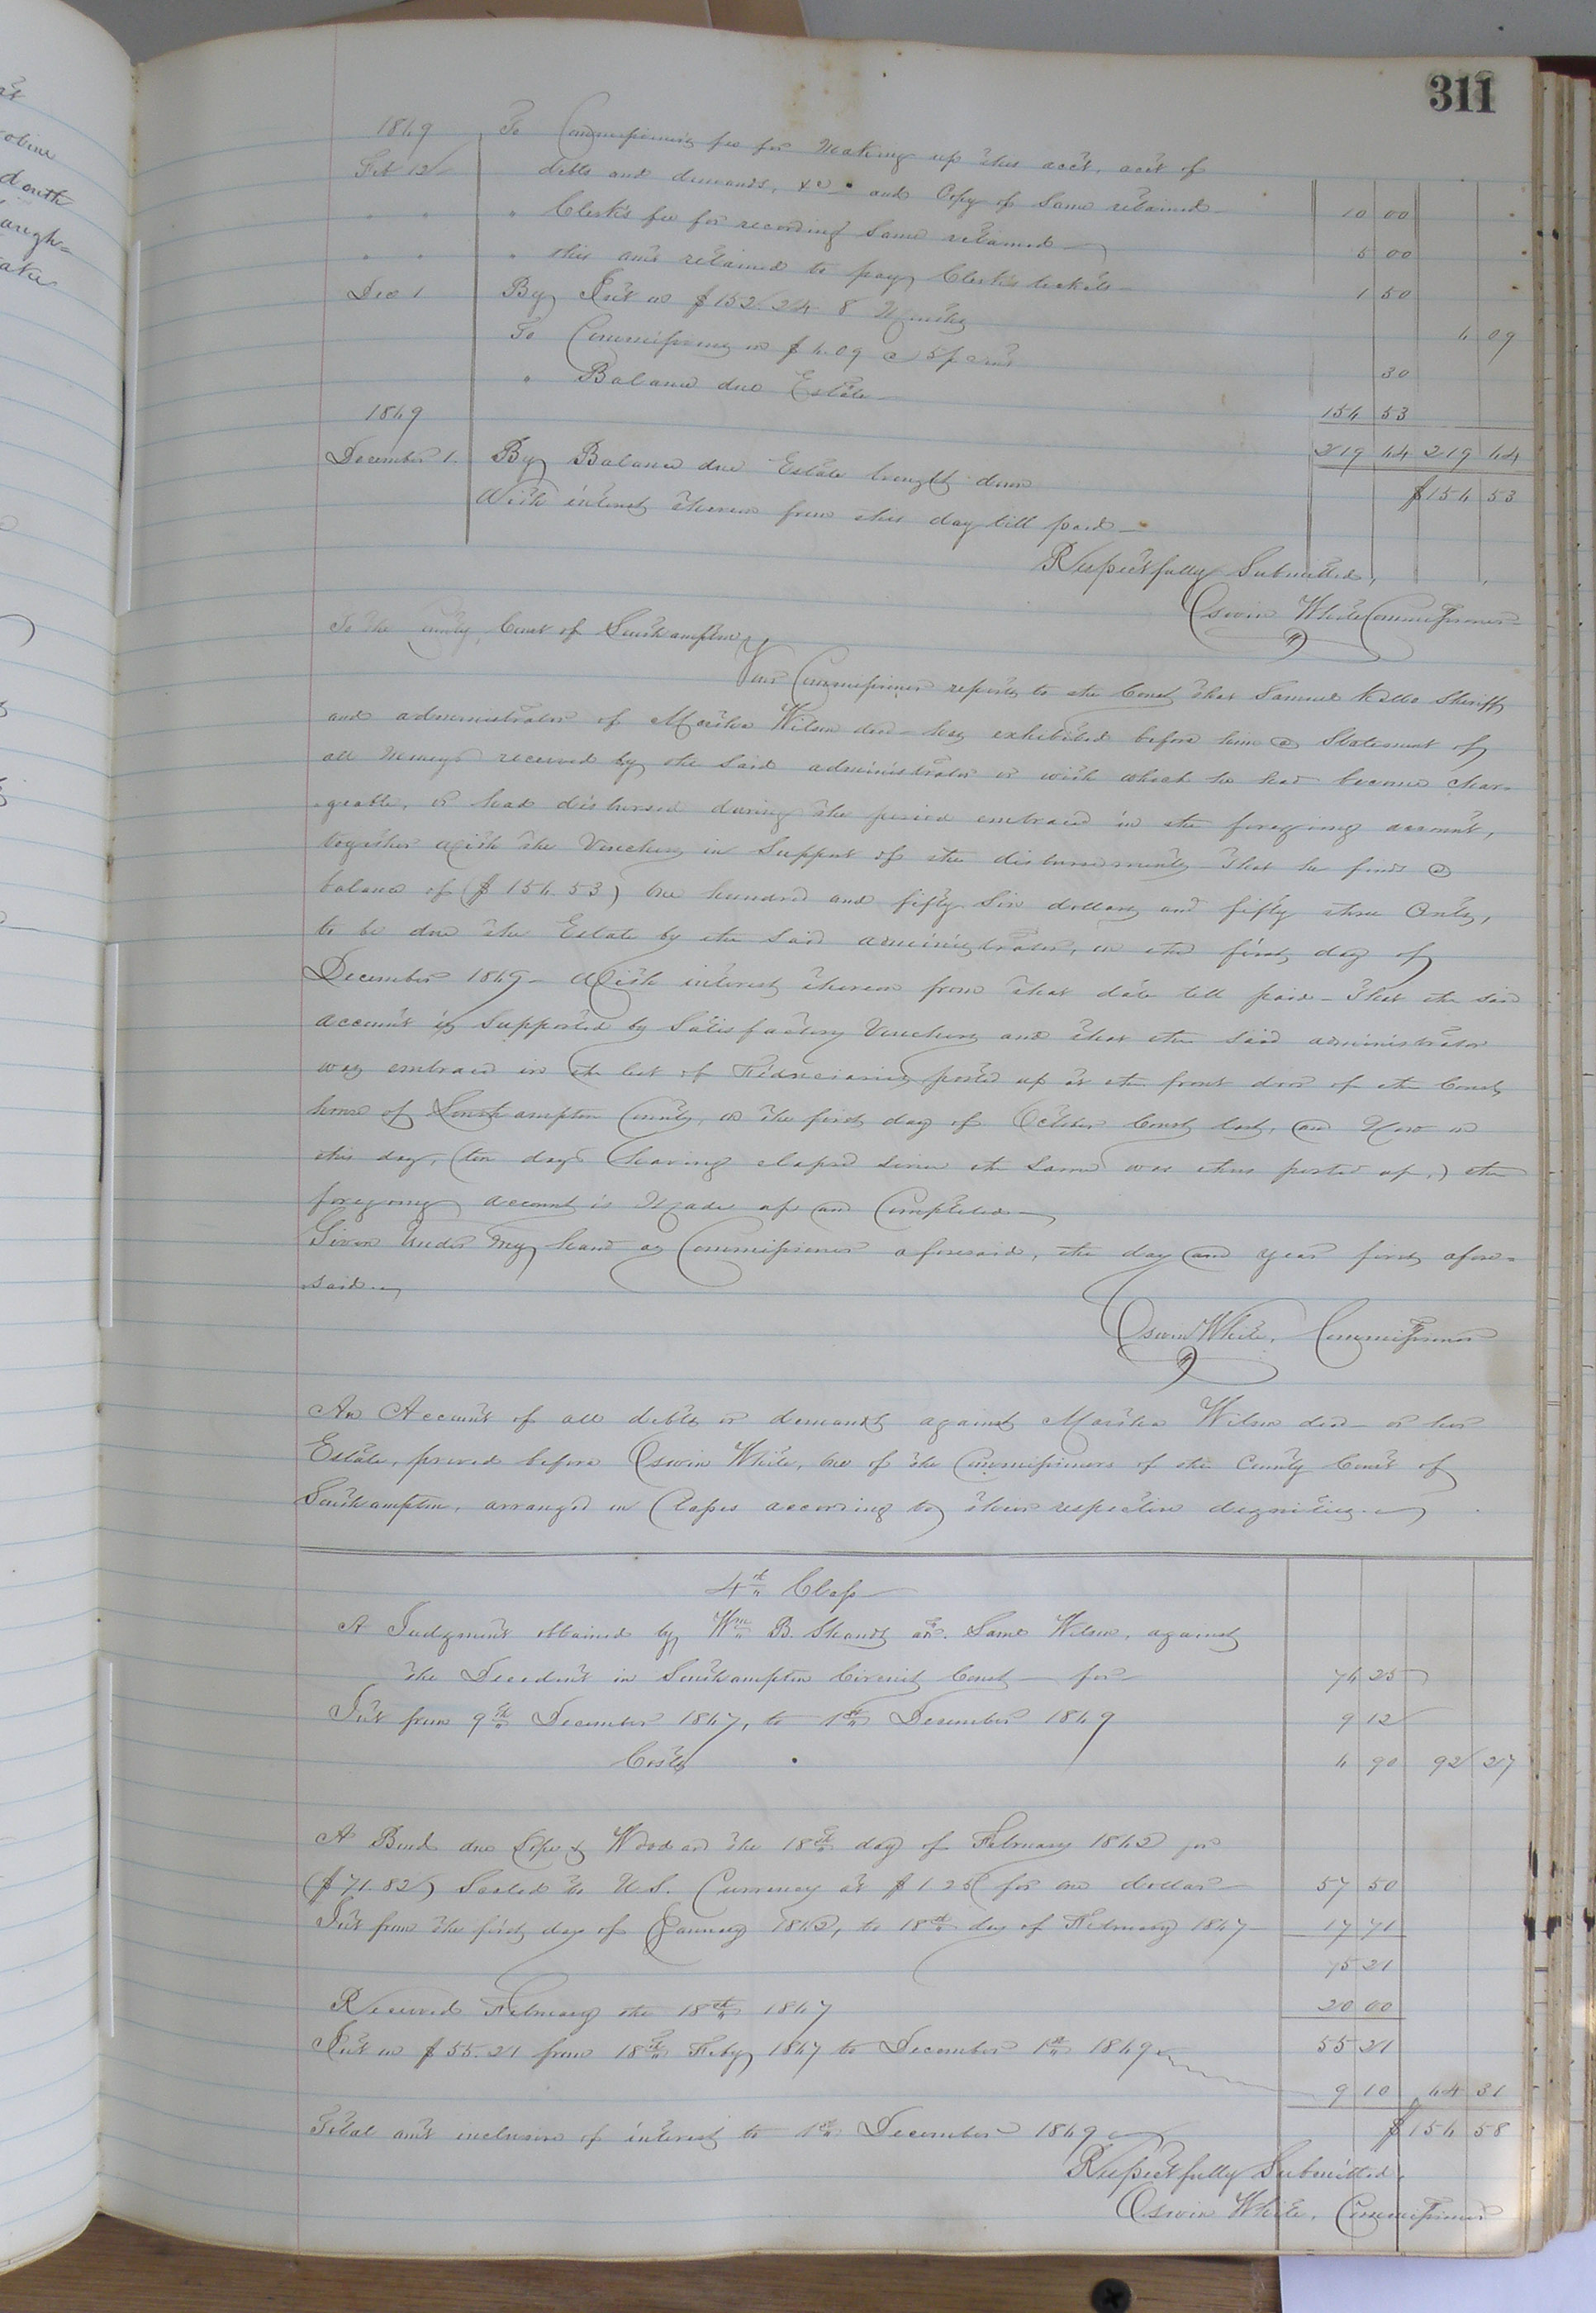 311
1869 To Commissioner's fee for Making up this acct, acct of
Feb 12 debts and demands, &c and Copy of Same retained 10 00
" " " Clerk's fee for recording Same retained 5 00
" " " this amt retained to pay Clerk's tickets 1 50
Dec 1 By Int on $152.24 8 Months 6 09
To Commissions on $6.09 @ 5 pr cent 30
" Balance due Estate 156 53
1869 219 64 219 64
December 1. By Balance due Estate brought down $156 53
With interest thereon from this day till paid
Respectfully Submitted,
Oswin White Commissioner
To the County Court of Southampton
Your Commissioner reports to the Court that Samuel Kello Sheriff
and administrator of Martha Wilson decd has exhibited before him a Statement of
all Moneys received by the said administrator or with which he had become char-
geable, or had disbursed during the period embraced in the foregoing account,
together with the Vouchers in Support of the disbursements That he finds a
balance of ($156.53) One hundred and fifty Six dollars and fifty three Cents,
to be due the Estate by the said administrator, on the first day of
December 1869 - With interest thereon from that date till paid - That the said
account is Supported by Satisfactory Vouchers and that the said administrator
was embraced in the list of Fiduciaries posted up at the front door of the Court
house of Southampton County, on the first day of October Court last, and Now on
this day, (ten days having elapsed since the same was thus posted up,) the
foregoing account is Made up and Completed
Given Under My hand as Commissioner aforesaid, the day and year first afore-
said.
Oswin White, Commissioner
An Account of all debts or demands against Martha Wilson decd - or her
Estate, proved before Oswin White, One of the Commissioners of the County Court of
Southampton, arranged in Classes according to their respective dignities.
4th Class
A Judgment obtained by Wm B. Shands Saml Wilson, against
the Decedent in Southampton Circuit Court - for 76 25
Int from 9th December 1867, to 1st December 1869 9 12
Costs 6 90 92 27
A Bond due Cope & Wood on the 18th day of February 1862 for
($71.82) Scaled to U.S. Currency at $1.25 for one dollar 57 50
Int from the first day of January 1862, to 18th day of February 1867 17 71
75 21
Received February the 18th 1867 20 00
Int on $55.21 from 18th Feby 1867 to December 1st 1869 55 21
9 10 64 31
Total amt inclusive of interest to 1st December 1869 $156 58
Respectfully Submitted,
Oswin White, Commissioner